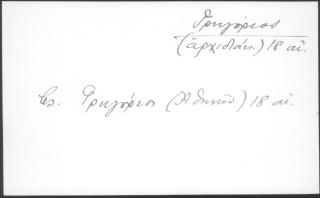 Γρηγόριος
(ἀρχιδιάκ.) 18 αἰ.
Βλ. Γρηγόριος (Ἀθηνῶν) 18 αἰ.